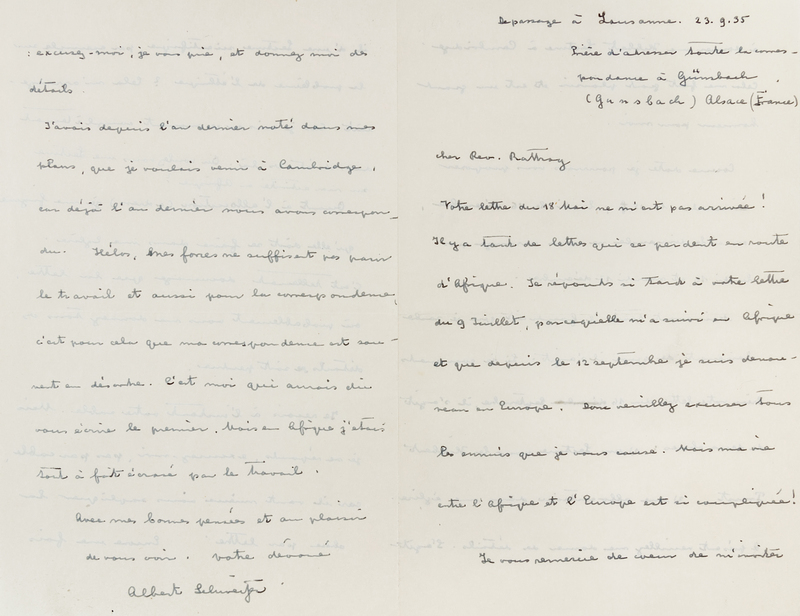 De passage à Lausanne. 23.9.35
Prière d'adresser toute la corres-
pondance à Günsbach,
(Gunsbach) Alsace (France)
cher Rev. Rattray
Votre lettre du 18 Mai ne m'est pas arrivée!
Il y a tant de lettres qui se perdent en route
d'Afrique. Je réponds si tard à votre lettre
du 9 Juillet, parcequ'elle m'a suivi en Afrique
et que depuis le 12 septembre je suis denou-
veau en Europe. Donc veuillez excuser tous
les ennuis que je vous cause. Mais ma vie
entre l'Afrique et l'Europe est si compliquée!
Je vous remercie de coeur de m'inviter
: excusez-moi, je vous prie, et donnez moi des
détails.
J'avais depuis l'an dernier noté dans mes
plans, que je voulais venir à Cambridge,
car déjà l'an dernier nous avons correspon-
du. Hélas, mes forces ne suffisent pas pour
le travail et aussi pour la correspondance,
c'est pour cela que ma correspondance est sou-
vent en désordre. C'est moi qui aurais du
vous écrire le premier. Mais en Afrique j'étais
tout à fait écrasé par le travail.
Avec mes bonnes pensées et au plaisir
de vous voir. votre dévoué
Albert Schweitzer